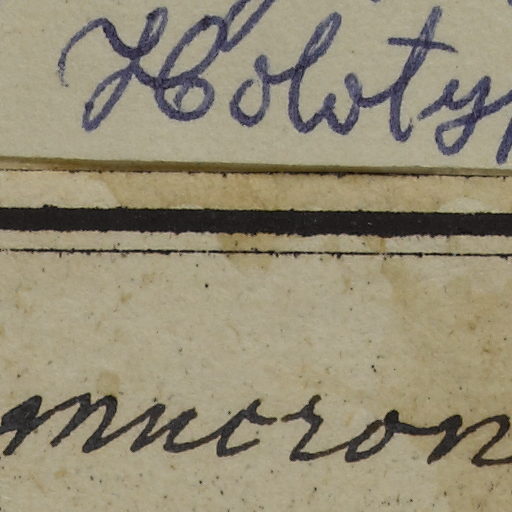 Holoty
mucron